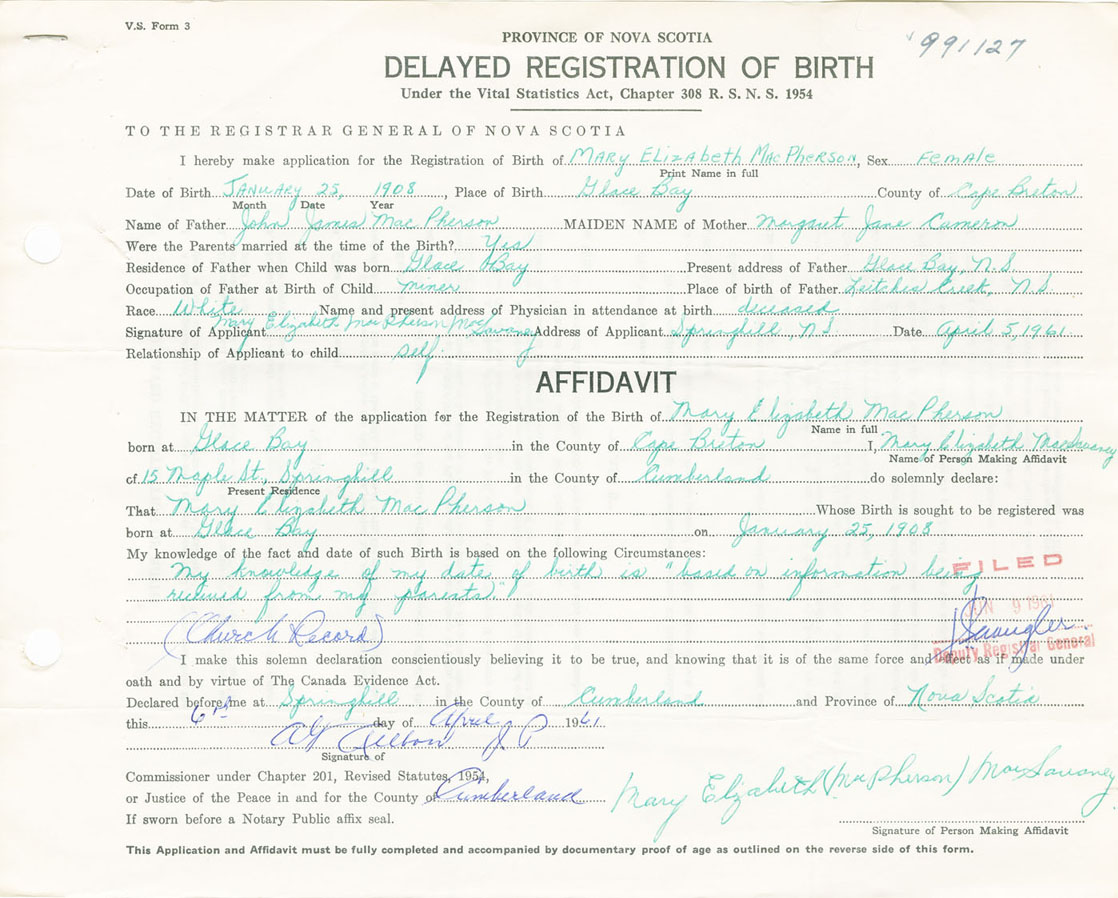 V.S. Form 3
PROVINCE OF NOVA SCOTIA
991127
DELAYED REGISTRATION OF BIRTH
Under the Vital Statistics Act, Chapter 308 R. S. N. S. 1954
TO THE REGISTRAR GENERAL OF NOVA SCOTIA
I hereby make application for the Registration of Birth of MARY ELIZABETH MACPHERSON, Sex Female
Print Name in full
Date of Birth JANUARY 25, 1908, Place of Birth Glace Bay County of Cape Breton
Month Date Year
Name of Father John James MacPherson MAIDEN NAME of Mother Margaret Jane Cameron
Were the Parents married at the time of the Birth? Yes
Residence of Father when Child was born Glace Bay Present address of Father Glace Bay, N.S.
Occupation of Father at Birth of Child miner Place of birth of Father Leitches Creek, N.S.
Race White Name and present address of Physician in attendance at birth deceased
Signature of Applicant Mary Elizabeth MacPherson Address of Applicant Springhill, N.S. Date April 5, 1961
Relationship of Applicant to child self.
AFFIDAVIT
IN THE MATTER of the application for the Registration of the Birth of Mary Elizabeth MacPherson
Name in full
born at Glace Bay in the County of Cape Breton I, Mary Elizabeth
Name of Person Making Affidavit
of 15 Maple St., Springhill in the County of Cumberland do solemnly declare:
Present Residence
That Mary Elizabeth MacPherson Whose Birth is sought to be registered was
born at Glace Bay on January 25, 1908
My knowledge of the fact and date of such Birth is based on the following Circumstances:
My knowledge of my date of birth is "based on information being
received from my parents."
FILED
JUN 9 1961
(Church Record)
Deputy Registrar General
I make this solemn declaration conscientiously believing it to be true, and knowing that it is of the same force and effect as if made under
oath and by virtue of The Canada Evidence Act.
Declared before me at Springhill in the County of Cumberland and Province of Nova Scotia
this 6th day of April 1961
J P
Signature of
Commissioner under Chapter 201, Revised Statutes, 1954,
or Justice of the Peace in and for the County of Cumberland
Mary Elizabeth (MacPherson)
If sworn before a Notary Public affix seal.
Signature of Person Making Affidavit
This Application and Affidavit must be fully completed and accompanied by documentary proof of age as outlined on the reverse side of this form.